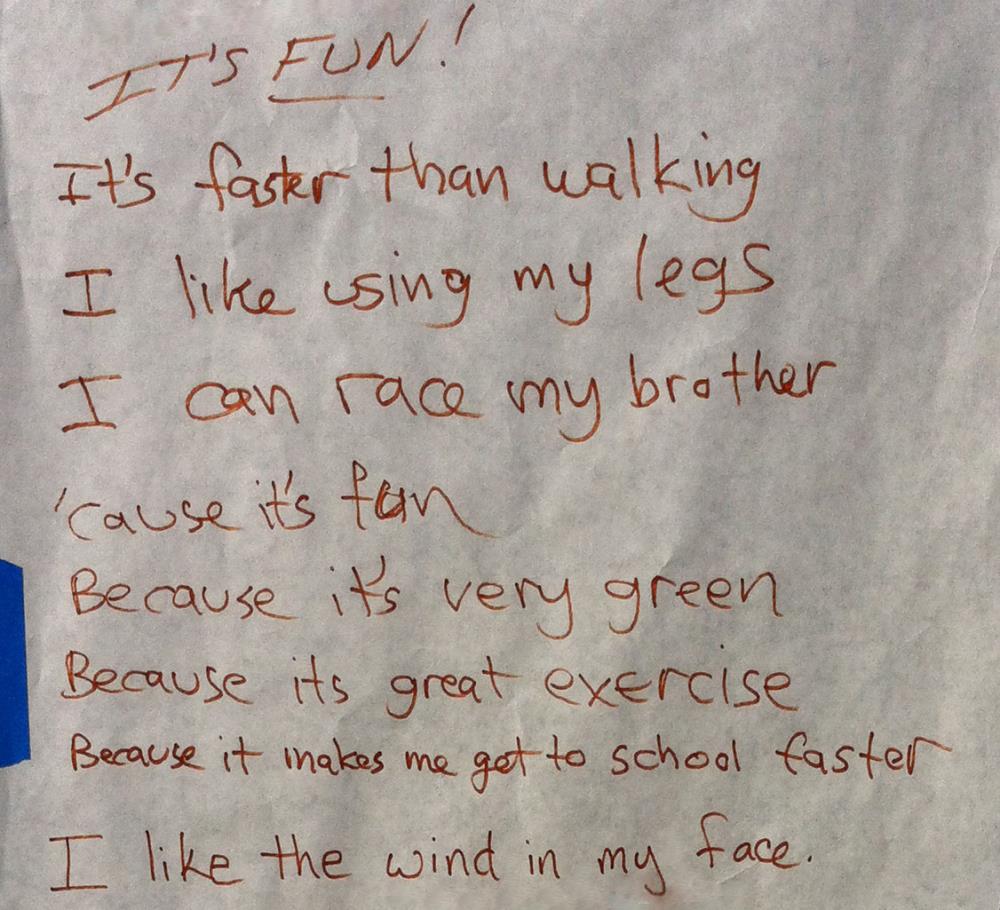 IT'S FUN!
It's faster than walking
I like using my legs
I can race my brother
'cause it's fun
Because it's very green
Because its great exercise
Because it makes me get to school faster
I like the wind in my face.